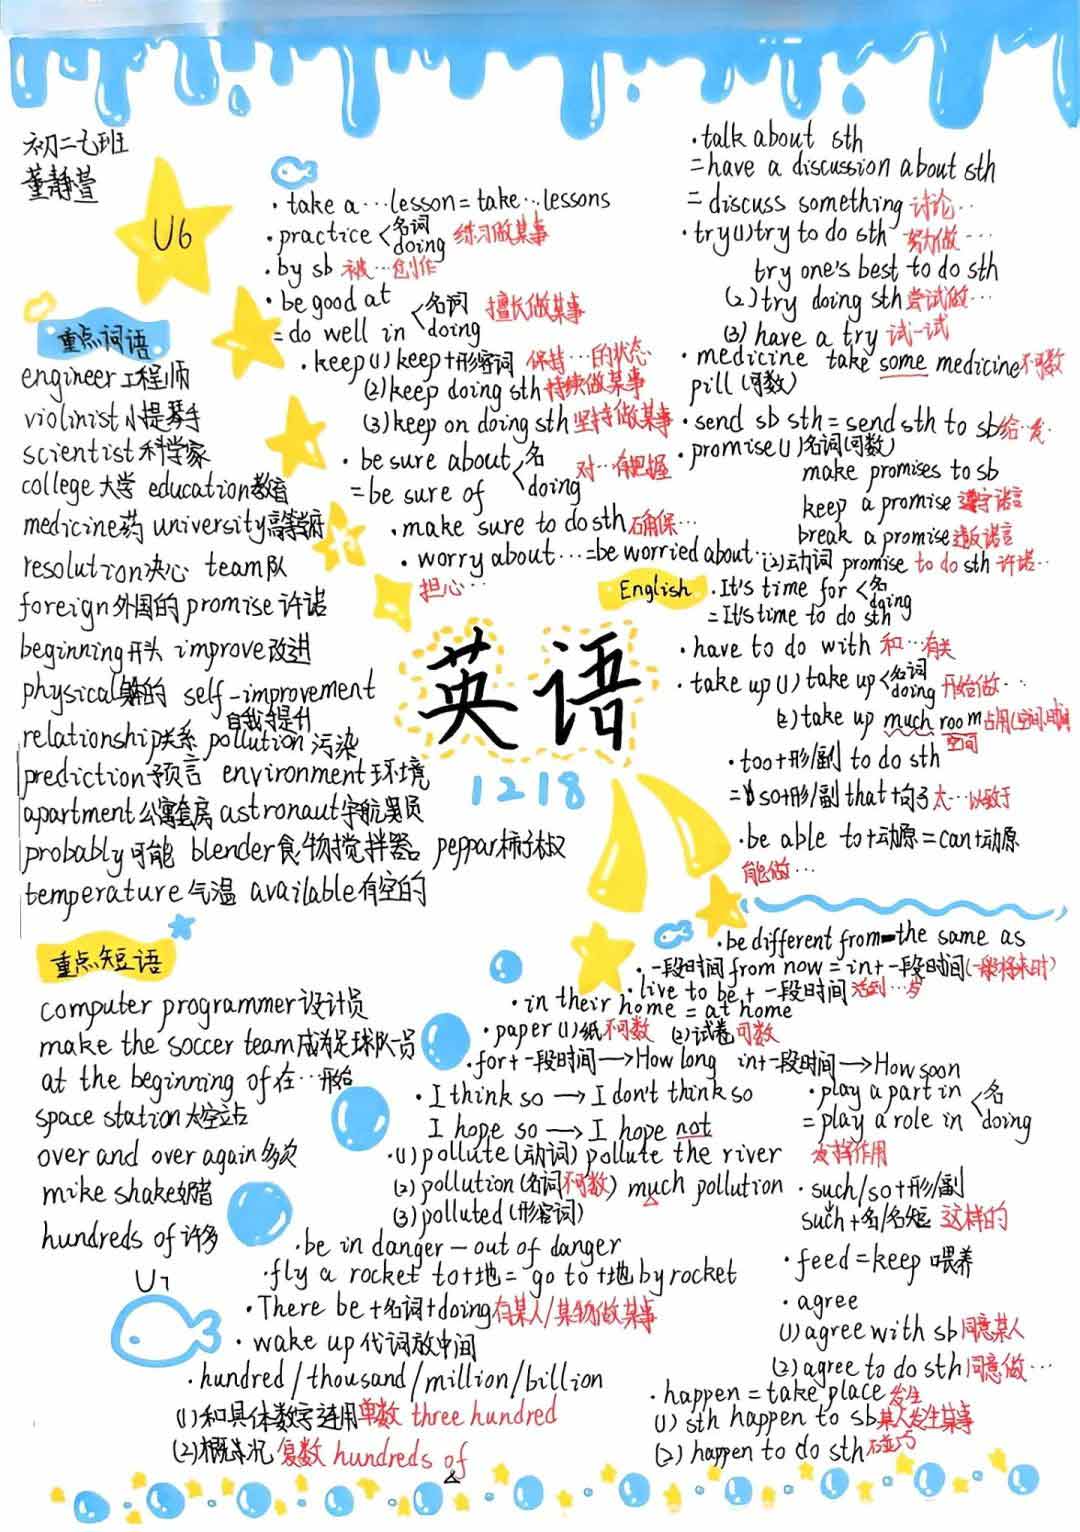 初二七班
董静萱
U6
· take a … lesson = take … lessons
· practice <名词 doing 练习做某事
· by sb 被…创作
· be good at <名词 doing 擅长做某事
= do well in
· keep (1) keep+形容词 保持…的状态
(2) keep doing sth 持续做某事
(3) keep on doing sth 坚持做某事
· be sure about <名 doing 对…有把握
= be sure of
· make sure to do sth 确保…
· worry about … = be worried about …
担心…
· talk about sth
= have a discussion about sth
= discuss something 讨论…
· try (1) try to do sth 努力做…
try one's best to do sth
(2) try doing sth 尝试做…
(3) have a try 试一试
· medicine take some medicine 不可数
pill (可数)
· send sb sth = send sth to sb 给…发
· promise (1) 名词(可数)
make promises to sb
keep a promise 遵守诺言
break a promise 违反诺言
(2) 动词 promise to do sth 许诺…
English
· It's time for <名 doing
= It's time to do sth
· have to do with 和…有关
· take up (1) take up <名词 doing 开始做…
(2) take up much room 占用(空间、时间)
空间
· too+形/副 to do sth
= so+形/副 that+句子 太…以致于
· be able to+动原 = can+动原
能做…
重点词语
engineer 工程师
violinist 小提琴手
scientist 科学家
college 大学 education 教育
medicine 药 university 高等学府
resolution 决心 team 队
foreign 外国的 promise 许诺
beginning 开头 improve 改进
physical 身体的 self-improvement
自我提升
relationship 关系 pollution 污染
prediction 预言 environment 环境
apartment 公寓套房 astronaut 宇航员
probably 可能 blender 食物搅拌器 peppar 柿子椒
temperature 气温 available 有空的
英语
1218
重点短语
computer programmer 设计员
make the soccer team 成为足球队一员
at the beginning of 在…开始
space station 太空站
over and over again 多次
mike shake 奶昔
hundreds of 许多
U7
· be different from — the same as
· 一段时间 from now = in+一段时间 (一般将来时)
· live to be + 一段时间 活到…岁
· in their home = at home
· paper (1) 纸 不可数 (2) 试卷 可数
· for+一段时间 → How long in+一段时间 → How soon
· I think so → I don't think so
I hope so → I hope not
· (1) pollute (动词) pollute the river
(2) pollution (名词不可数) much pollution
(3) polluted (形容词)
· be in danger — out of danger
· fly a rocket to+地 = go to+地 by rocket
· There be+名词+doing 有某人/某物做某事
· wake up 代词放中间
· hundred/thousand/million/billion
(1) 和具体数字连用 单数 three hundred
(2) 概况 复数 hundreds of
· play a part in <名 doing
= play a role in
发挥作用
· such/so+形/副
such+名/名短 这样的
· feed = keep 喂养
· agree
(1) agree with sb 同意某人
(2) agree to do sth 同意做…
· happen = take place 发生
(1) sth happen to sb 某人发生某事
(2) happen to do sth 碰巧